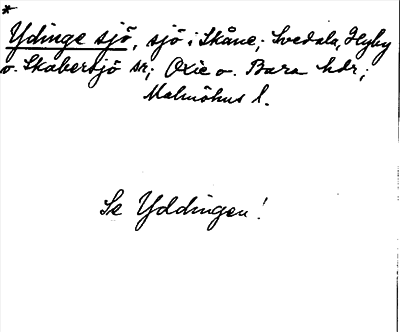 *
Ydinge sjö, sjö i Skåne; Svedala, Hyby
o. Skabersjö snr; Oxie o. Bara hdr;
Malmöhus l.
Se Yddingen!